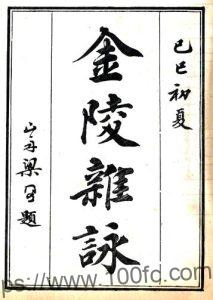 己巳初夏
金陵雜詠
梁
題
ps://www.100fd.com